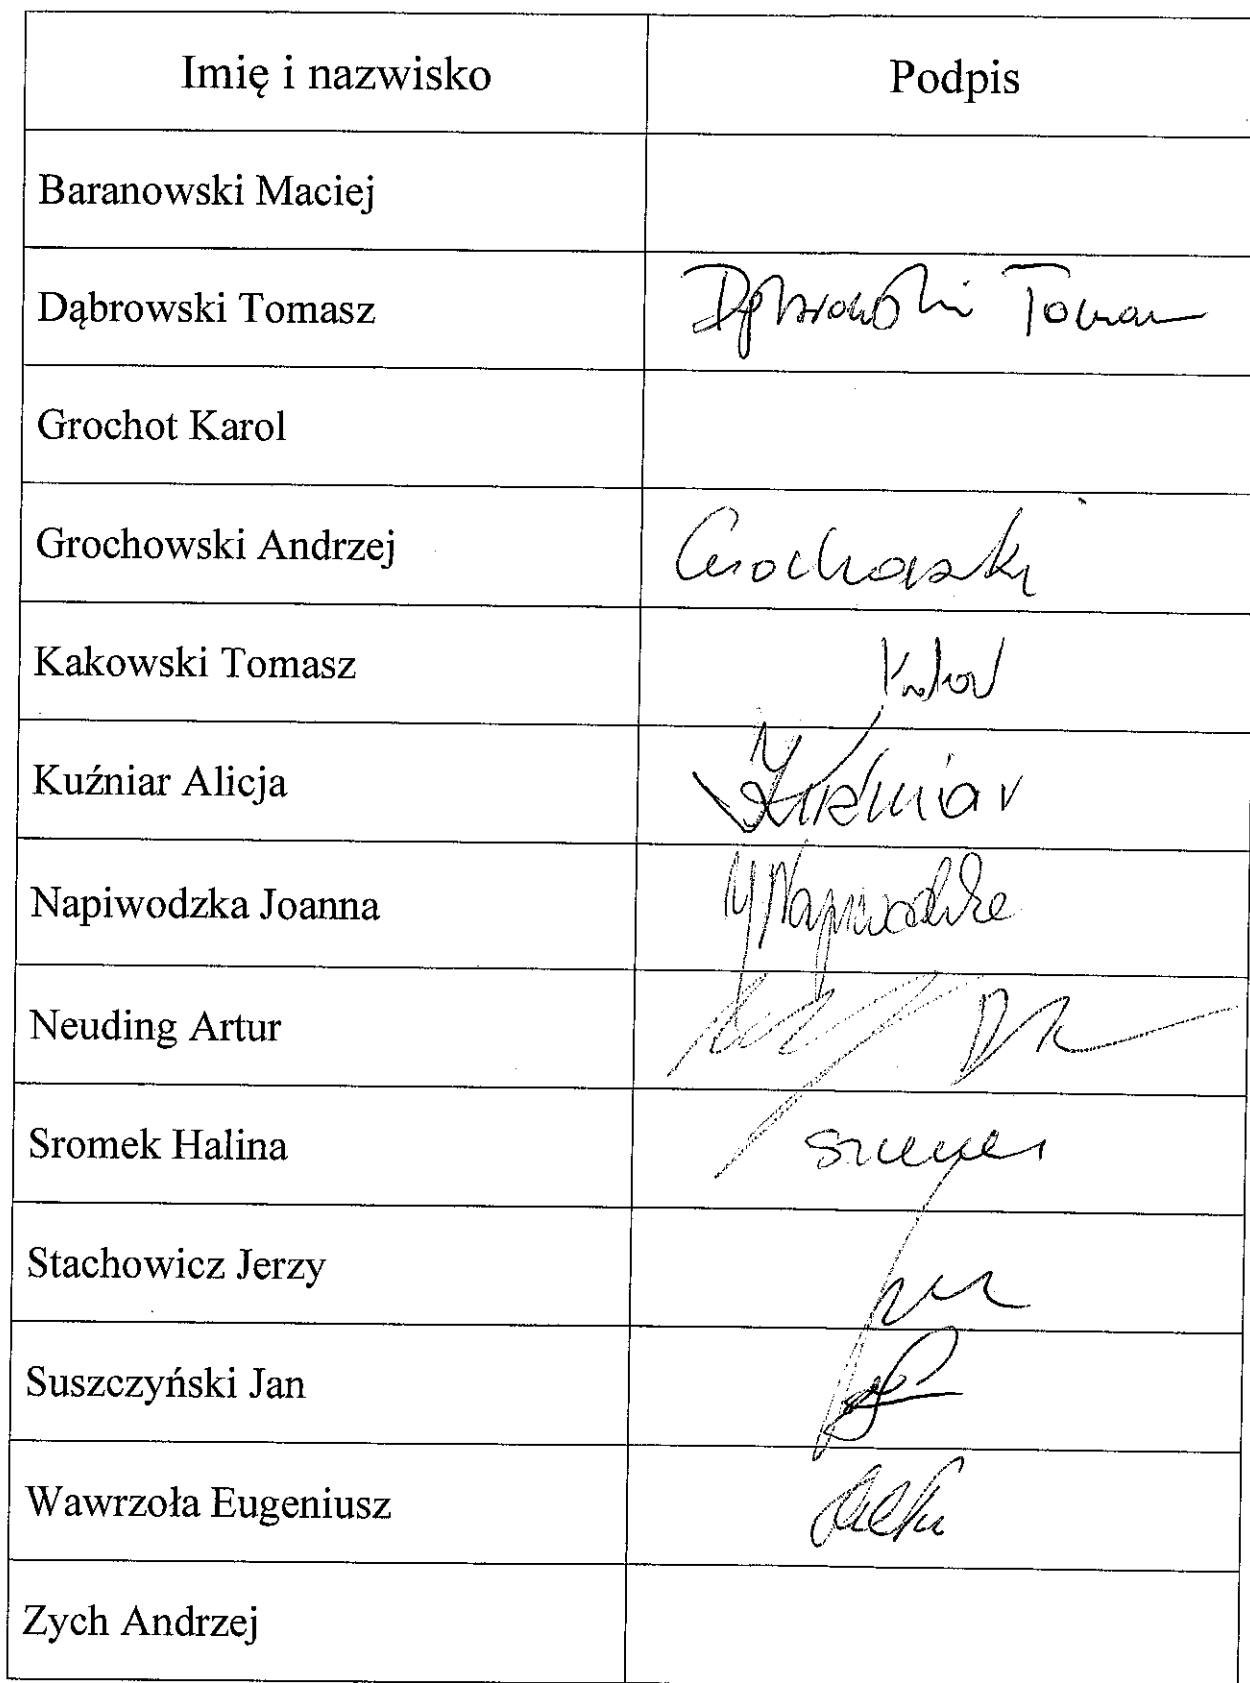 Imię i nazwisko Podpis
Baranowski Maciej
Dąbrowski Tomasz Dąbrowski Tomasz
Grochot Karol
Grochowski Andrzej Grochowski
Kakowski Tomasz
Kuźniar Alicja Kuźniar
Napiwodzka Joanna Napiwodzka
Neuding Artur
Sromek Halina
Stachowicz Jerzy
Suszczyński Jan
Wawrzoła Eugeniusz
Zych Andrzej